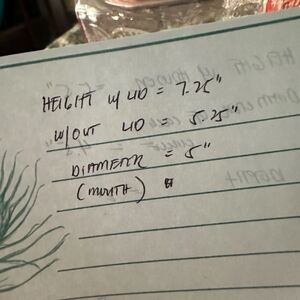 HEIGHT W LID = 7.25"
W/OUT LID = 5.25"
DIAMETER = 5"
(MOUTH)